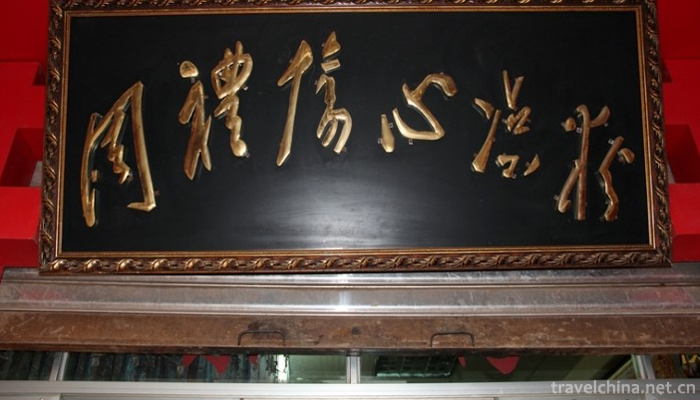 周禮傷心凉粉
travelchina.net.cn